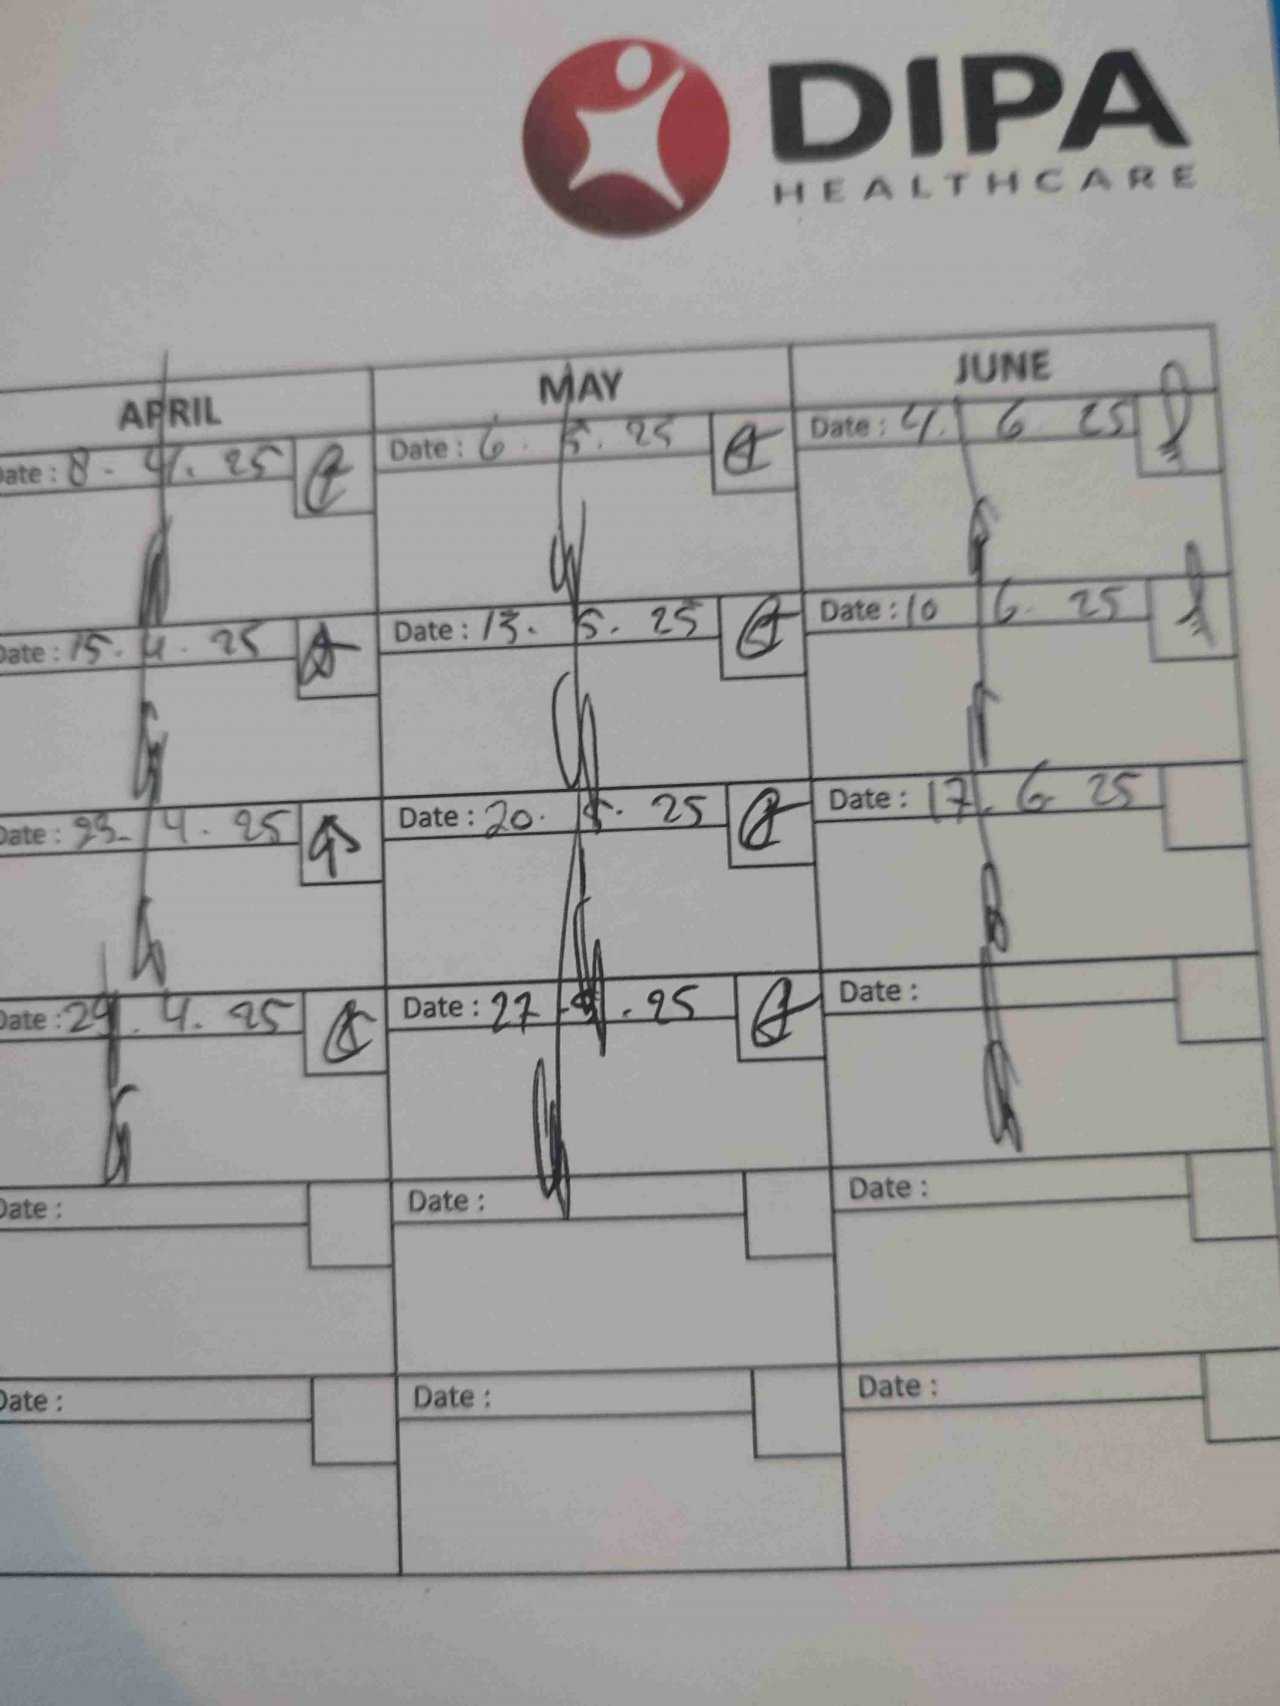 DIPA
HEALTHCARE
APRIL MAY JUNE
Date : 8 . 4 . 25 Date : 6 . 5 . 25 Date : 4 . 6 25
Date : 15 . 4 . 25 Date : 13 . 5 . 25 Date : 10 6 . 25
Date : 23 . 4 . 25 Date : 20 . 5 . 25 Date : 17 . 6 25
Date : 29 . 4 . 25 Date : 27 . 5 . 25 Date :
Date : Date : Date :
Date : Date : Date :